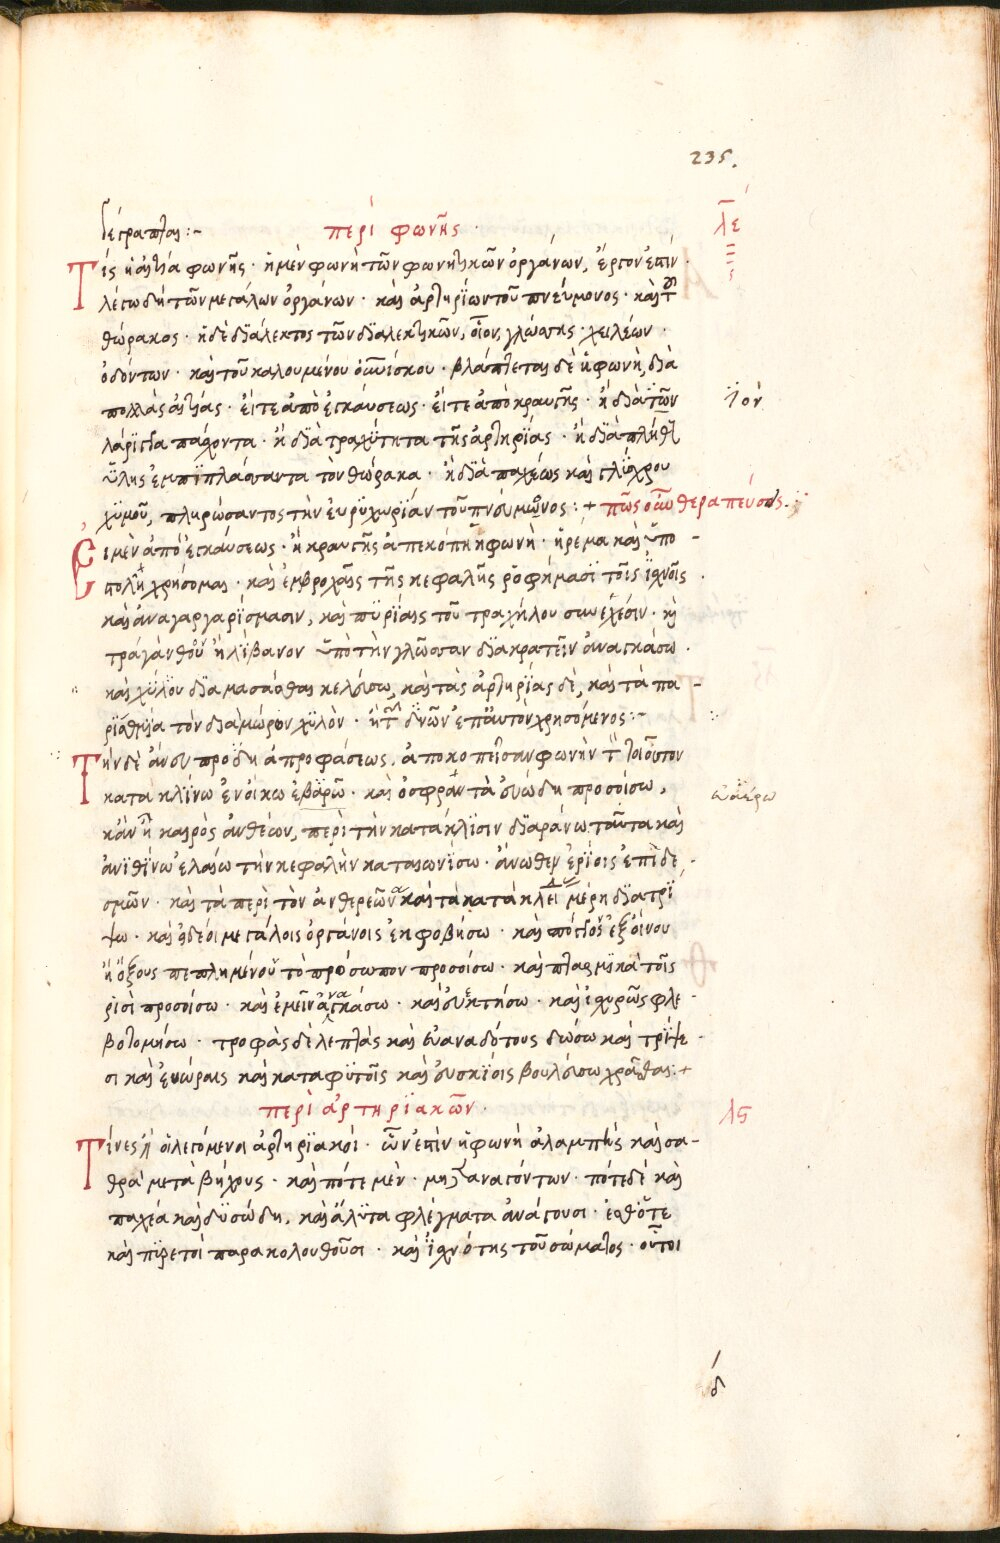 235.
γέγραπται :~ περὶ φωνῆς. λε
Τίς ἡ αἰτία φωνῆς · ἡ μὲν φωνὴ τῶν φωνητικῶν ὀργάνων, ἔργον ἐστίν ·
λέγω δὴ τῶν μεγάλων ὀργάνων · καὶ ἀρτηρίων τοῦ πνεύμονος · καὶ τοῦ
θώρακος · ἡ δὲ διάλεκτος τῶν διαλεκτικῶν, οἷον, γλώσσης · χειλέων ·
ὀδόντων · καὶ τοῦ καλουμένου · βλάπτεται δὲ ἡ φωνὴ, διὰ
πολλὰς αἰτίας · εἴτε ἀπὸ ἐγκαύσεως · εἴτε ἀπὸ κραυγῆς · ἢ διὰ τῶν
λάριγγα πάσχοντα · ἢ διὰ τραχύτητα τῆς ἀρτηρίας · ἢ διὰ πλῆθος
ὕλης ἐμπιπλάσαντα τὸν θώρακα · ἢ διὰ παχέως καὶ γλίσχρου
χυμοῦ, πληρώσαντος τὴν εὐρυχωρίαν τοῦ πνεύμονος :+ πῶς θεραπεύσεις.
Εἰ μὲν ἀπὸ ἐγκαύσεως · ἢ κραυγῆς ἀπεκόπη ἡ φωνὴ · ἠρέμα καὶ ὑπο
στολῇ χρήσομαι · καὶ ἐμβροχαῖς τῆς κεφαλῆς ῥοφήμασι τοῖς ἰσχνοῖς ·
καὶ ἀναγαργαρίσμασιν, καὶ πυρίαις τοῦ τραχήλου συνεχέσιν · καὶ
τραγάνθου ἢ λίβανον ὑπὸ τὴν γλῶσσαν διακρατεῖν ἀναγκάσω ·
καὶ χυλὸν διαμασάσθαι κελεύσω, καὶ τὰς ἀρτηρίας δὲ, καὶ τὰ πα
ρίσθμια τὸν διὰ μώρων χυλὸν · ἢ χρησόμενος :~
Τὴν δὲ ἄνευ προδήλου προφάσεως, ἀποκοπεῖσαν φωνὴν
κατακλίνω ἐν οἴκω · καὶ ὀσφραντὰ εὐώδη προσοίσω,
κἂν ᾖ καιρὸς ἀνθέων, περὶ τὴν κατάκλισιν διαράνω ταῦτα καὶ
ἀνιθίνω ἐλαίω τὴν κεφαλὴν καταιονίσω · ἄνωθεν ἐρίοις ἐπιδε
σμῶν · καὶ τὰ περὶ τὸν ἀνθερεῶνα καὶ τὰ κατὰ κλεῖδα μέρη διατρί
ψω · καὶ μεγάλοις ὀργάνοις ἐκφοβήσω · καὶ σπόγγον ἐξ οἴνου
ἢ ὄξους πεπλημένου τὸ πρόσωπον προσοίσω · καὶ πταρμικὰ τοῖς
ρισὶ προσοίσω · καὶ ἐμεῖν ἀναγκάσω · καὶ · καὶ ἰσχυρῶς φλε
βοτομήσω · τροφὰς δὲ λεπτὰς καὶ εὐαναδότους δώσω καὶ τρίψε
σι καὶ ἐώραις καὶ καταφύτοις καὶ εὐσκίοις βουλεύσω χρᾶσθαι :+
περὶ ἀρτηριακῶν. λϛ
Τίνες οἱ λεγόμενοι ἀρτηριακοί · ὧν ἐστὶν ἡ φωνὴ ἀλαμπὴς καὶ σα
θρὰ μετὰ βήχους · καὶ πότε μὲν · μηδὲν ἀναγόντων · πότε δὲ καὶ
παχέα καὶ δυσώδη, καὶ ἄλυτα φλέγματα ἀνάγουσι · ἐσθότε
καὶ πυρετοὶ παρακολουθοῦσι · καὶ ἰσχνότης τοῦ σώματος · οὗτοι